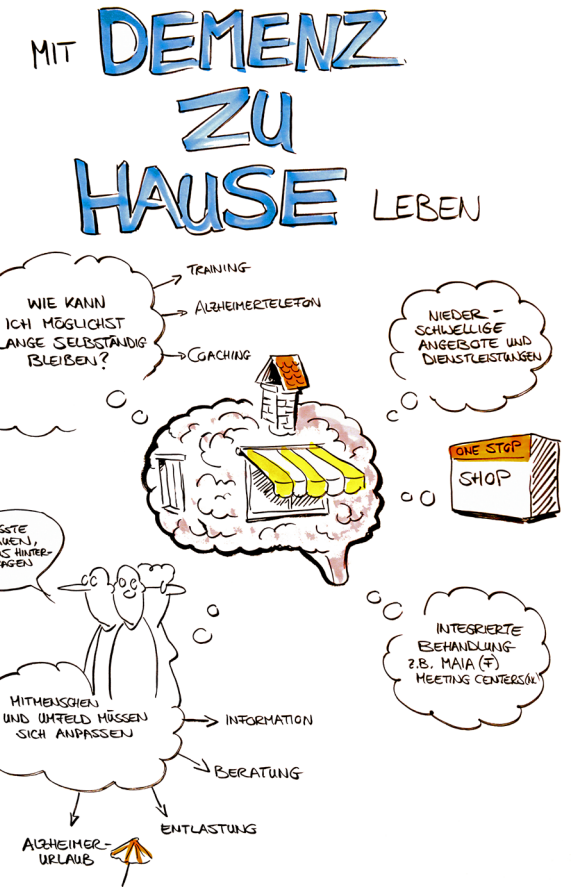 MIT DEMENZ
ZU
HAUSE LEBEN
WIE KANN
ICH MÖGLICHST
LANGE SELBSTÄNDIG
BLEIBEN?
TRAINING
ALZHEIMERTELEFON
COACHING
NIEDER-
SCHWELLIGE
ANGEBOTE UND
DIENSTLEISTUNGEN
ONE STOP
SHOP
HINTER-
INTEGRIERTE
BEHANDLUNG
Z.B. MAIA (F)
MEETING CENTERS(NL)
MITMENSCHEN
UND UMFELD MÜSSEN
SICH ANPASSEN
INFORMATION
BERATUNG
ENTLASTUNG
ALZHEIMER-
URLAUB